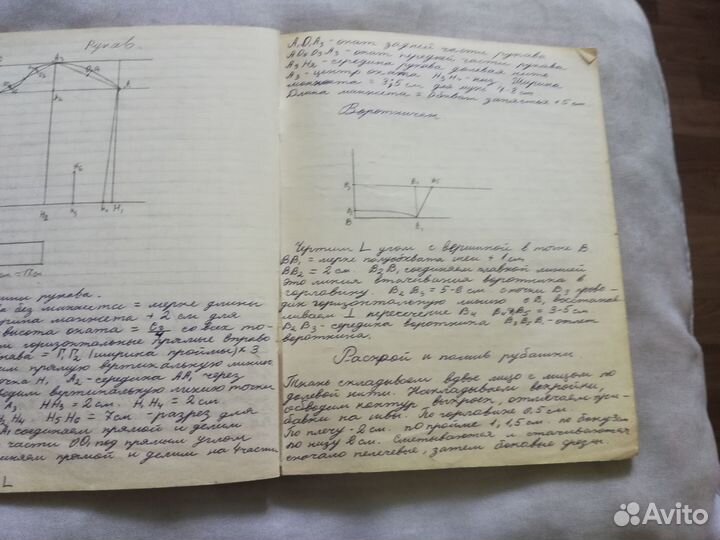 Рукав.
H2
H3
H1
ами рукава.
а без манжета = мерке длины
ирина манжета + 2 см для
высота оката = Сг со всех то-
м горизонтальные прямые вправо
кава = ПГг (ширина проймы) × 3
им прямую вертикальную линию
очка H1 A2 - середина AA1 через
водим вертикальную линию точки
A3 HH3 = 2 см, H1H4 = 2 см.
H5H6 = 7 см - разрез для
соединяем прямой и делим
части OO1 под прямым углом
иняем прямой и делим на 4 части
L
A1O1A3 - окат задней части рукава
AO4O3A3 - окат передней части рукава
A3H2 - середина рукава долевая нить
A3 - центр оката H3H4 - низ. Ширина
манжета = 3,5 см для муж 4-8 см
Длина манжета = обхват запястья + 5 см.
Воротничек
B3
B4
B5
B2
B
B1
Чертим L углом с вершиной в точке B
BB1 = мерке полуобхвата шеи + 1 см
BB2 = 2 см. B2B1 соединяем плавной линией
это линия втачивания воротника в
горловину. B2B3 = 5-8 см с точки B3 прово-
дим горизонтальную линию с B1 восстанав
ливаем ⊥ пересечение B4 B4B5 = 3-5 см
B2B3 - середина воротника B3B5B1 - отлет
воротника.
Раскрой и пошив рубашки.
Ткань складываем вдвое лицо с лицом по
долевой нити. Накладываем выкройки,
обводим контур выкроек, отмечаем при-
бавки на швы. По горловине 0.5 см.
По плечу - 2 см. по пройме 1, 1,5 см. по боку 2 см
по низу 2 см. Сметываются и стачиваются
сначало плечевые, затем боковые срезы.
Avito